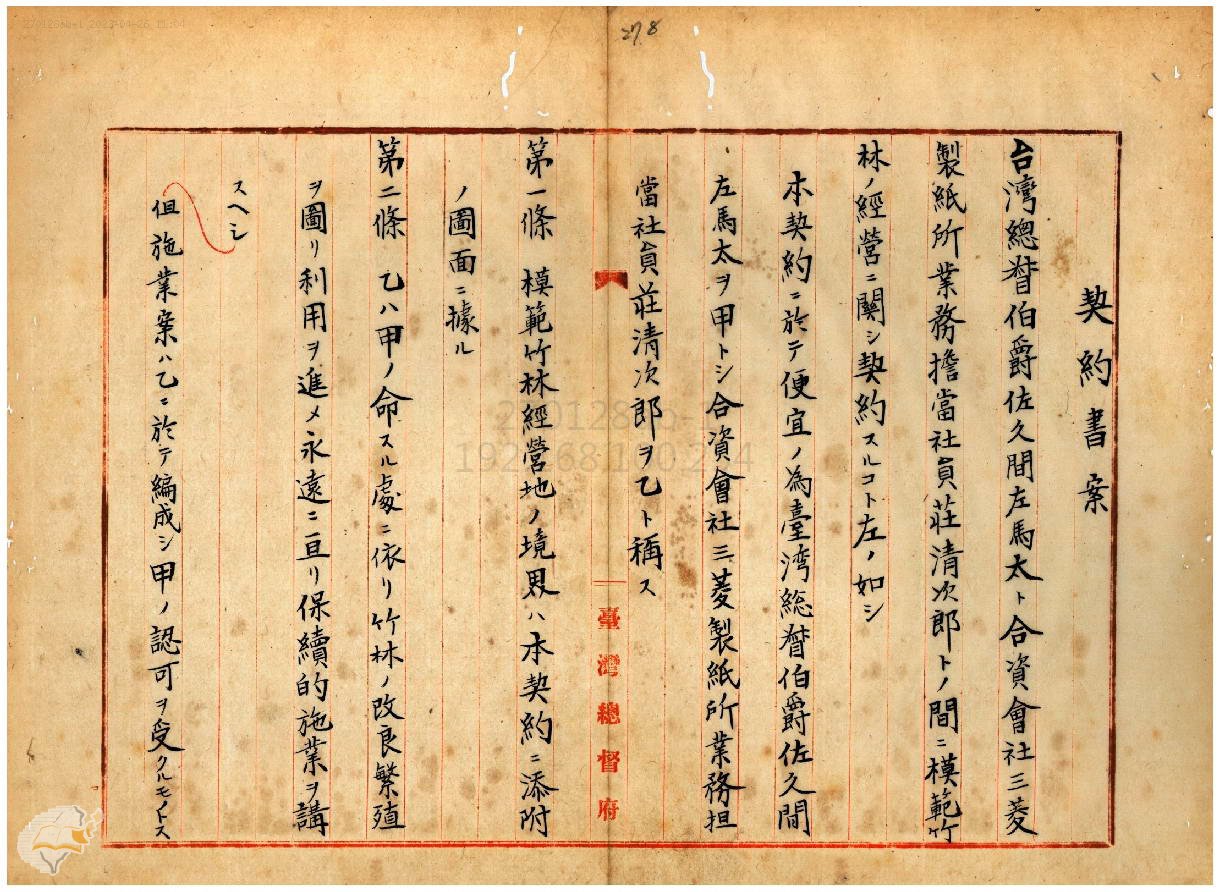 270128bb-1 2023-04-26 11:04
278
契約書案
台湾總督伯爵佐久間左馬太ト合資會社三菱
製紙所業務擔當社員莊清次郎トノ間ニ模範竹
林ノ經營ニ關シ契約スルコト左ノ如シ
本契約ニ於テ便宜ノ為臺湾総督伯爵佐久間
左馬太ヲ甲トシ合資會社三菱製紙所業務担
當社員莊清次郎ヲ乙ト稱ス
臺灣總督府
第一條 模範竹林經營地ノ境界ハ本契約ニ添附
ノ圖面ニ據ル
第二條 乙ハ甲ノ命スル處ニ依リ竹林ノ改良繁殖
ヲ圖リ利用ヲ進メ永遠ニ亘リ保續的施業ヲ講
スヘシ
但施業案ハ乙ニ於テ編成シ甲ノ認可ヲ受クルモノトス